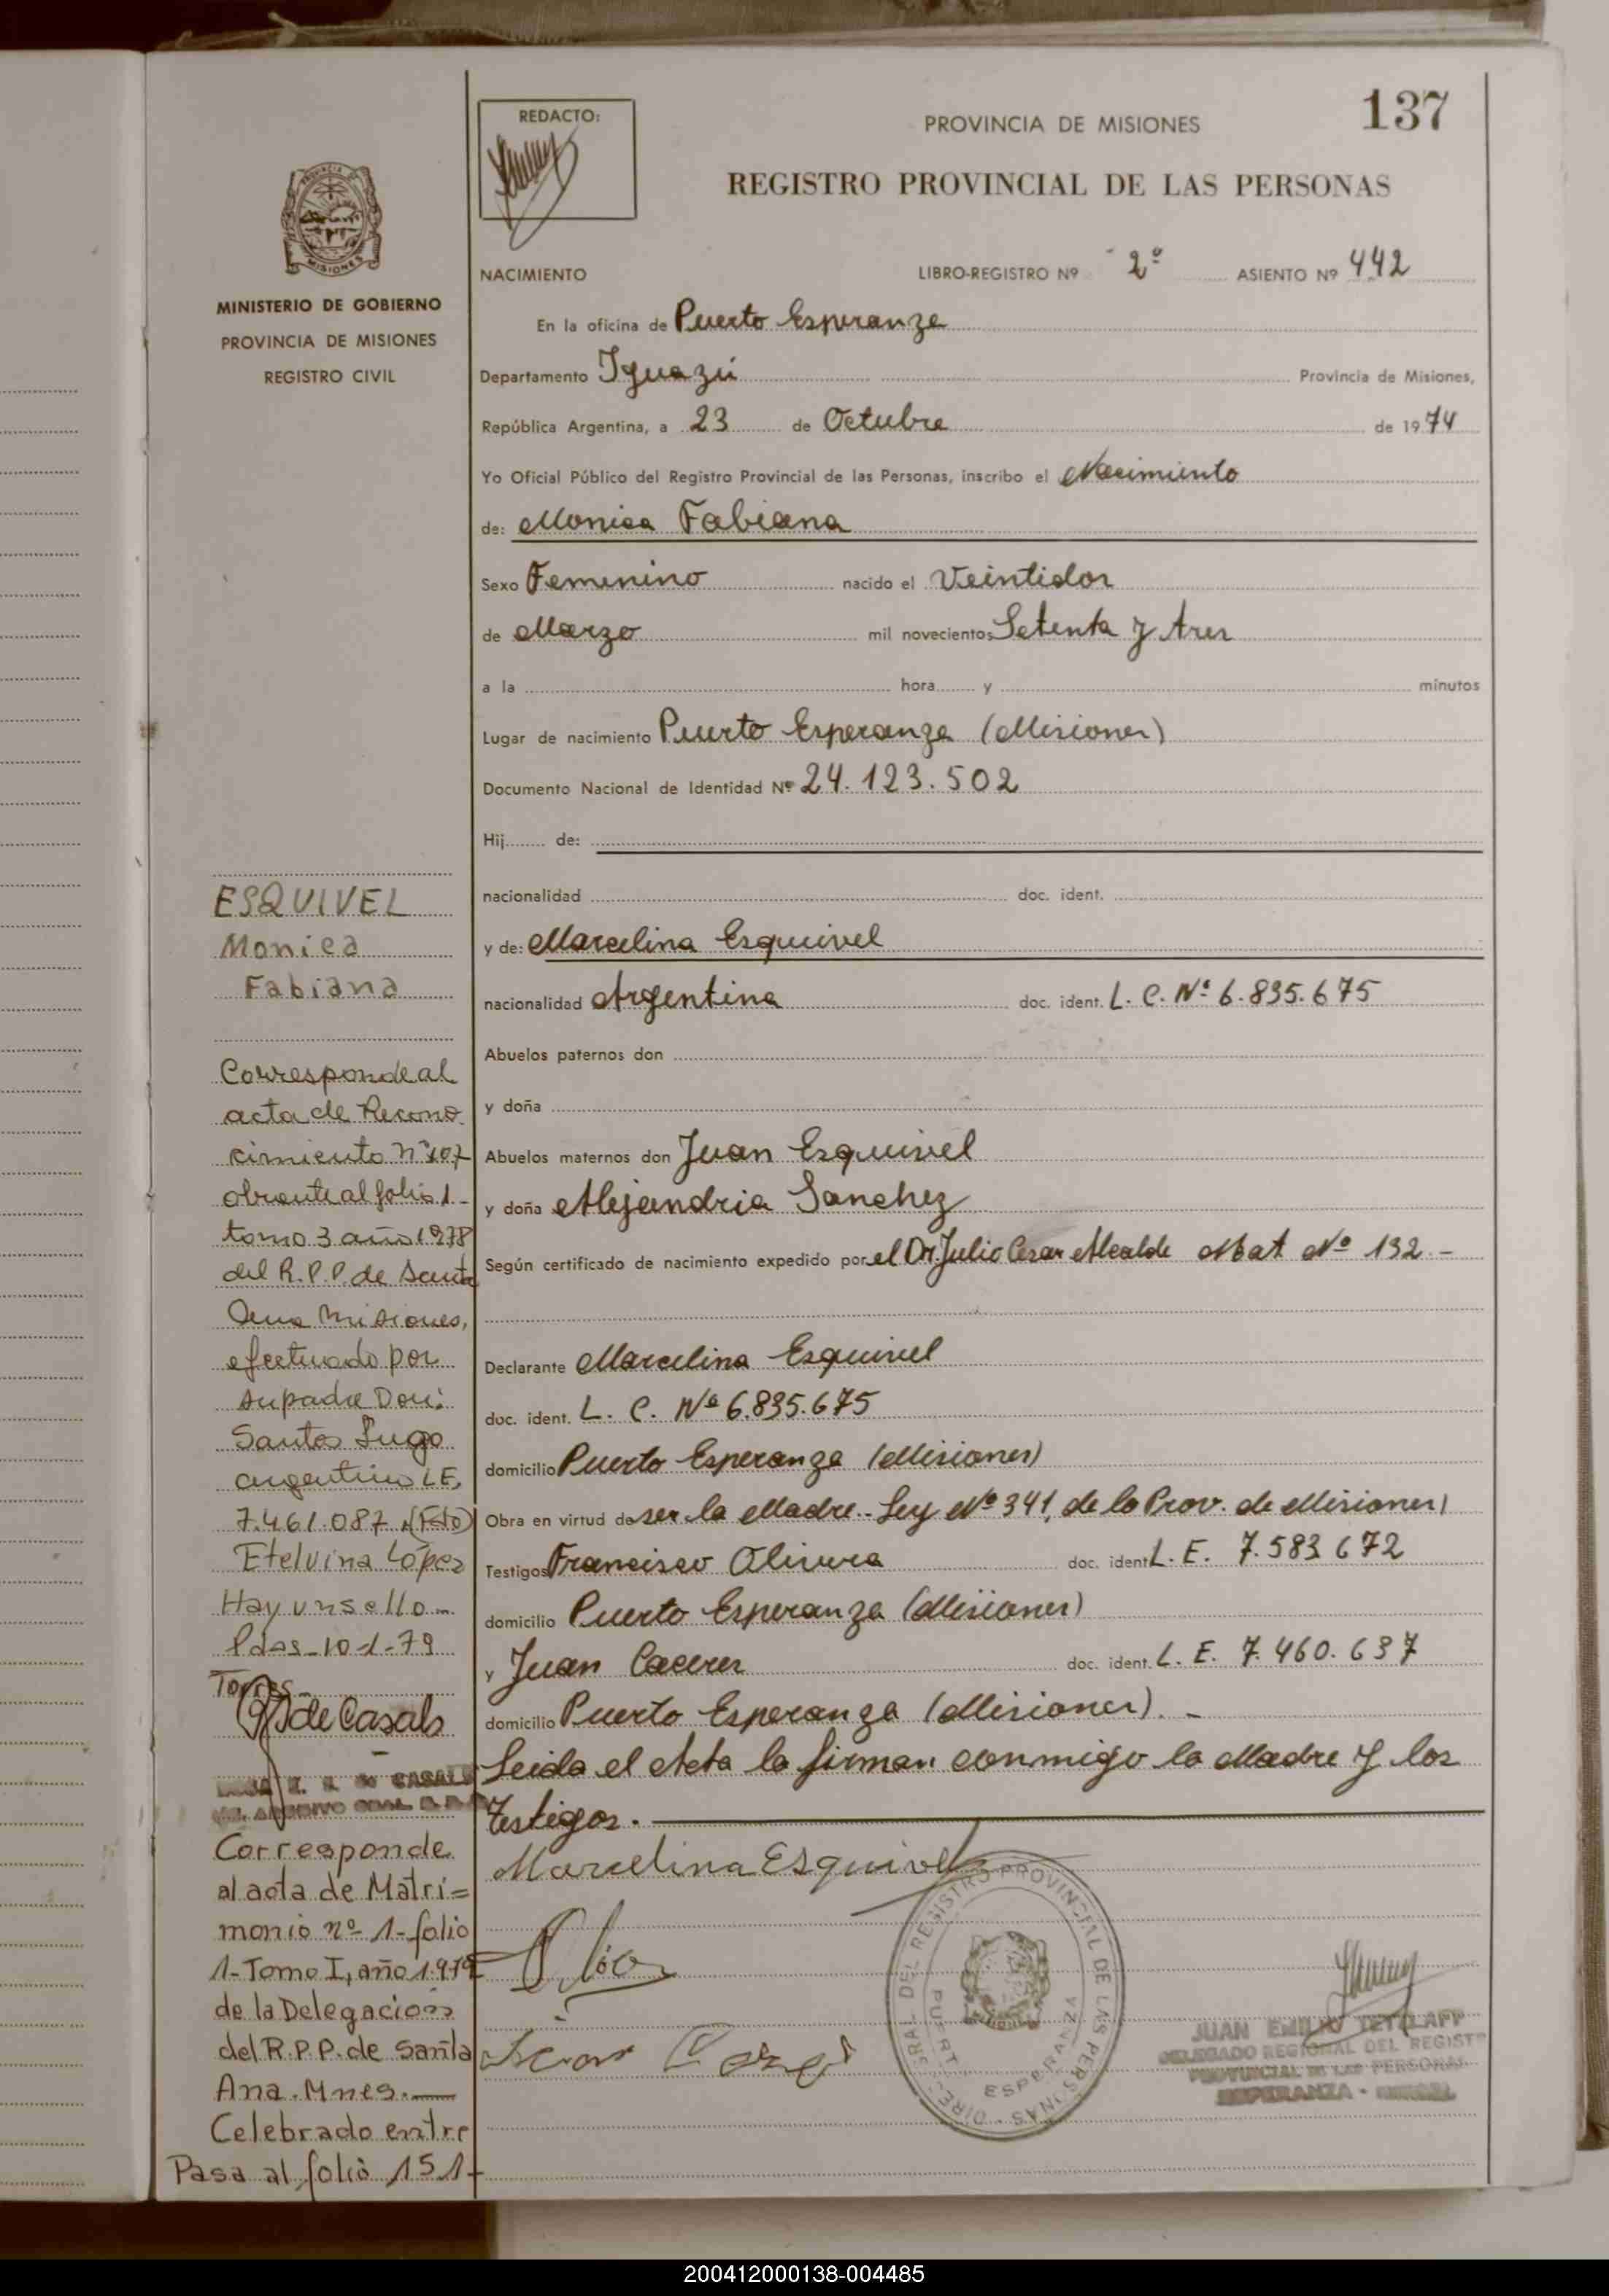 137
REDACTO:
PROVINCIA DE MISIONES
REGISTRO PROVINCIAL DE LAS PERSONAS
MISIONES
MINISTERIO DE GOBIERNO
PROVINCIA DE MISIONES
REGISTRO CIVIL
NACIMIENTO LIBRO-REGISTRO Nº 2º ASIENTO Nº 442
En la oficina de Puerto Esperanza
Departamento Iguazú Provincia de Misiones,
República Argentina, a 23 de Octubre de 1974
Yo Oficial Público del Registro Provincial de las Personas, inscribo el Nacimiento
de: Monica Fabiana
Sexo Femenino nacido el Veintidos
de Marzo mil novecientos Setenta y tres
a la hora y minutos
Lugar de nacimiento Puerto Esperanza (Misiones)
Documento Nacional de Identidad Nº 24.123.502
Hij de:
nacionalidad doc. ident.
y de: Marcelina Esquivel
nacionalidad Argentina doc. ident. L. C. Nº 6.835.675
Abuelos paternos don
y doña
Abuelos maternos don Juan Esquivel
y doña Alejandria Sanchez
Según certificado de nacimiento expedido por el Dr. Julio Cesar Alcalde Mat Nº 132.-
Declarante Marcelina Esquivel
doc. ident. L. C. Nº 6.835.675
domicilio Puerto Esperanza (Misiones)
Obra en virtud de ser la Madre.- Ley Nº 341, de la Prov. de Misiones)
Testigos Francisco Olivera doc. ident L. E. 7.583 672
domicilio Puerto Esperanza (Misiones)
y Juan Caceres doc. ident. L. E. 7.460.637
domicilio Puerto Esperanza (Misiones). -
Leida el Acta la firman conmigo la Madre y los
Testigos.
Marcelina Esquivel
REGISTRO PROVINCIAL DE LAS PERSONAS
ESPERANZA
JUAN EMILIO TETZLAFF
DELEGADO REGIONAL DEL REGIST
PROVINCIAL DE LAS PERSONAS
ESPERANZA -
ESQUIVEL
Monica
Fabiana
Corresponde al
acta de Recono
cimiento nº 107
obrante al folio 1-
tomo 3 año 1978
del R.P.P. de Santa
Ana Misiones,
efectuado por
su padre Don:
Santos Lugo
argentino L.E.
7.461.087 (Fdo)
Etelvina López
Hay un sello-
Pdas-10-1-79
Torres
de Casals
CASALS
Corresponde
al acta de Matri=
monio nº 1-folio
1-Tomo I, año 1979
de la Delegación
del R.P.P. de Santa
Ana. Mnes.
Celebrado entre
Pasa al folio 151-
200412000138-004485